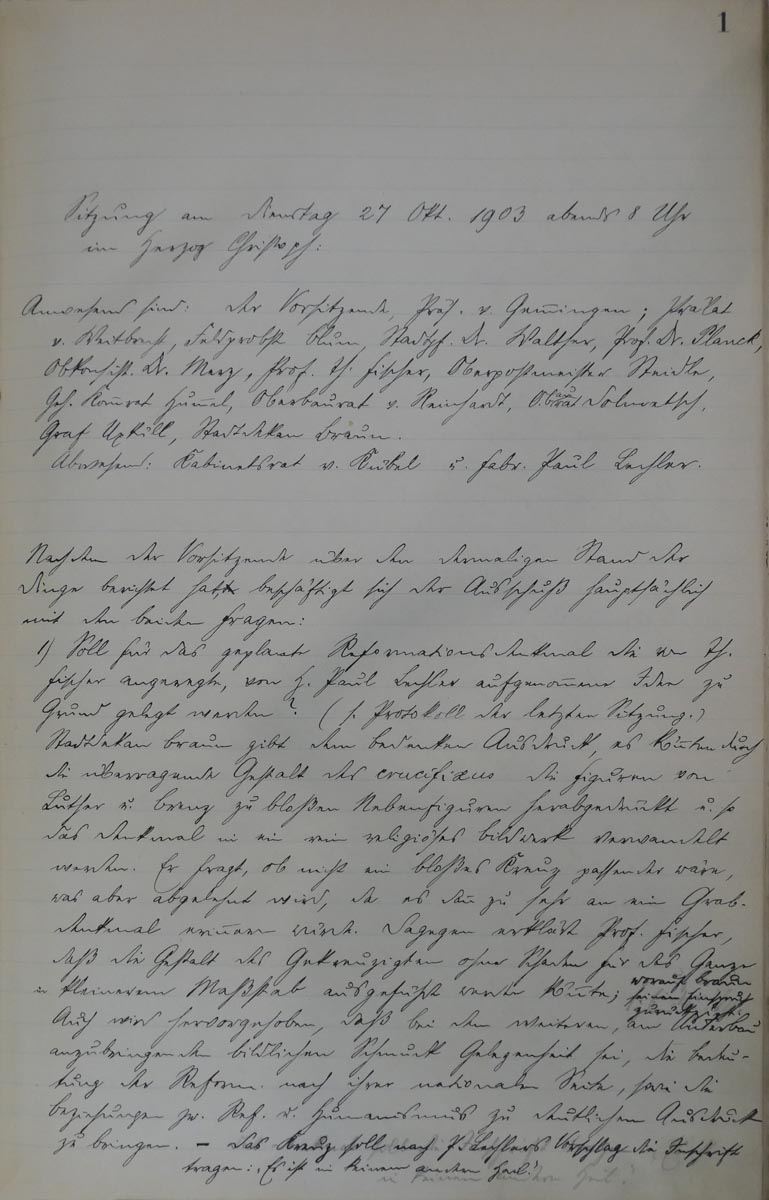 1
Sitzung am Dienstag 27 Okt. 1903 abends 8 Uhr
im Herzog Christoph:
Anwesend sind: der Vorsitzende, Präs. v. Gemmingen; Prälat
v. Weitbrecht, Feldprobst Blum, Stadtpf. Dr. Walther, Prof. Dr. Planck,
Obkonsist. Dr. Merz, Prof. Th. Fischer, Oberpostmeister Steidle,
Geh. Komrat Hummel, Oberbaurat v. Reinhardt, O.baurat Dolmetsch,
Graf Uxküll, Stadtdekan Braun.
Abwesend: Kabinetsrat v. Kübel u. Fabr. Paul Lechler.
Nachdem der Vorsitzende über den dermaligen Stand der
Dinge berichtet hat, beschäftigt sich der Ausschuß hauptsächlich
mit den beiden Fragen:
1) Soll für das geplante Reformationsdenkmal die von Th.
Fischer angeregte, von H. Paul Lechler aufgenommene Idee zu
Grund gelegt werden? (s. Protokoll der letzten Sitzung.)
Stadtdekan Braun gibt dem Bedenken Ausdruck, es könnten durch
die überragende Gestalt des crucifixus die Figuren von
Luther u. Brenz zu bloßen Nebenfiguren herabgedrückt u. so
das Denkmal in ein rein religiöses Bildwerk verwandelt
werden. Er fragt, ob nicht ein bloßes Kreuz passender wäre,
was aber abgelehnt wird, da es dann zu sehr an ein Grab-
denkmal erinnern würde. Dagegen erklärt Prof. Fischer,
daß die Gestalt des Gekreuzigten ohne Schaden für das Ganze
in kleinerem Maßstab ausgeführt werden könnte; worauf Braun
seinen Einspruch
zurückzieht.
Auch wird hervorgehoben, daß bei dem weiteren, am Unterbau
anzubringenden bildlichen Schmuck Gelegenheit sei, die Bedeu-
tung der Reform. nach ihrer nationalen Seite, sowie die
Beziehungen zw. Ref. u. Humanismus zu deutlichem Ausdruck
zu bringen. – Das Kreuz soll nach P. Lechlers Vorschlag die Inschrift
tragen: "Es ist in keinem andern Heil."